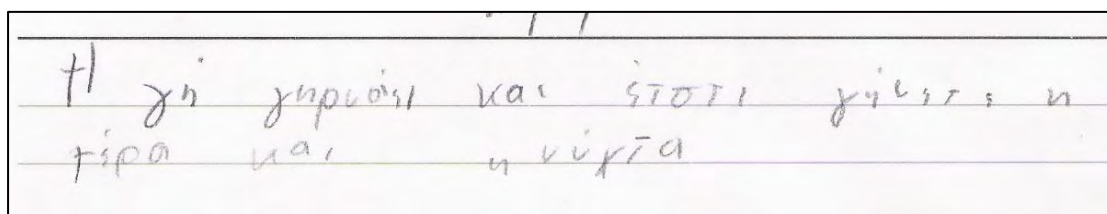 Η γή γηρνάει και έτστι γήνετε η
μέρα και η νύχτα